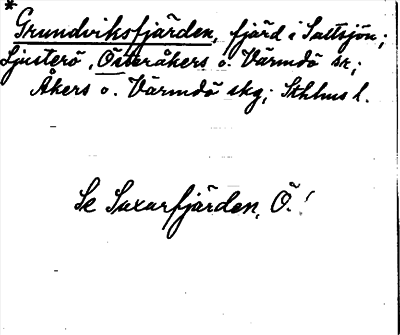 * Grundviksfjärden, fjärd i Saltsjön;
Ljusterö, Österåkers o. Värmdö sn;
Åkers o. Värmdö skg; Sthlms l.
Se Saxarfjärden, Ö.!